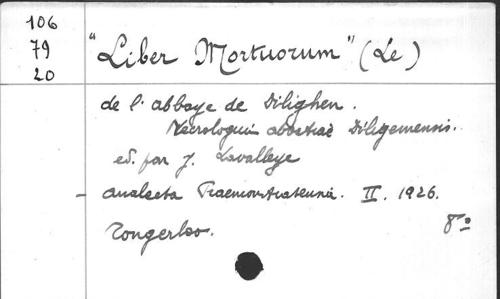 106
79
20
"Liber Mortuorum" (Le)
de l'abbaye de Dilighen.
Necrologium abbatiae Diligemensis.
ed. par J. Lavalleye
- Analecta Praemonstratensia. II. 1926.
Tongerloo. 8°